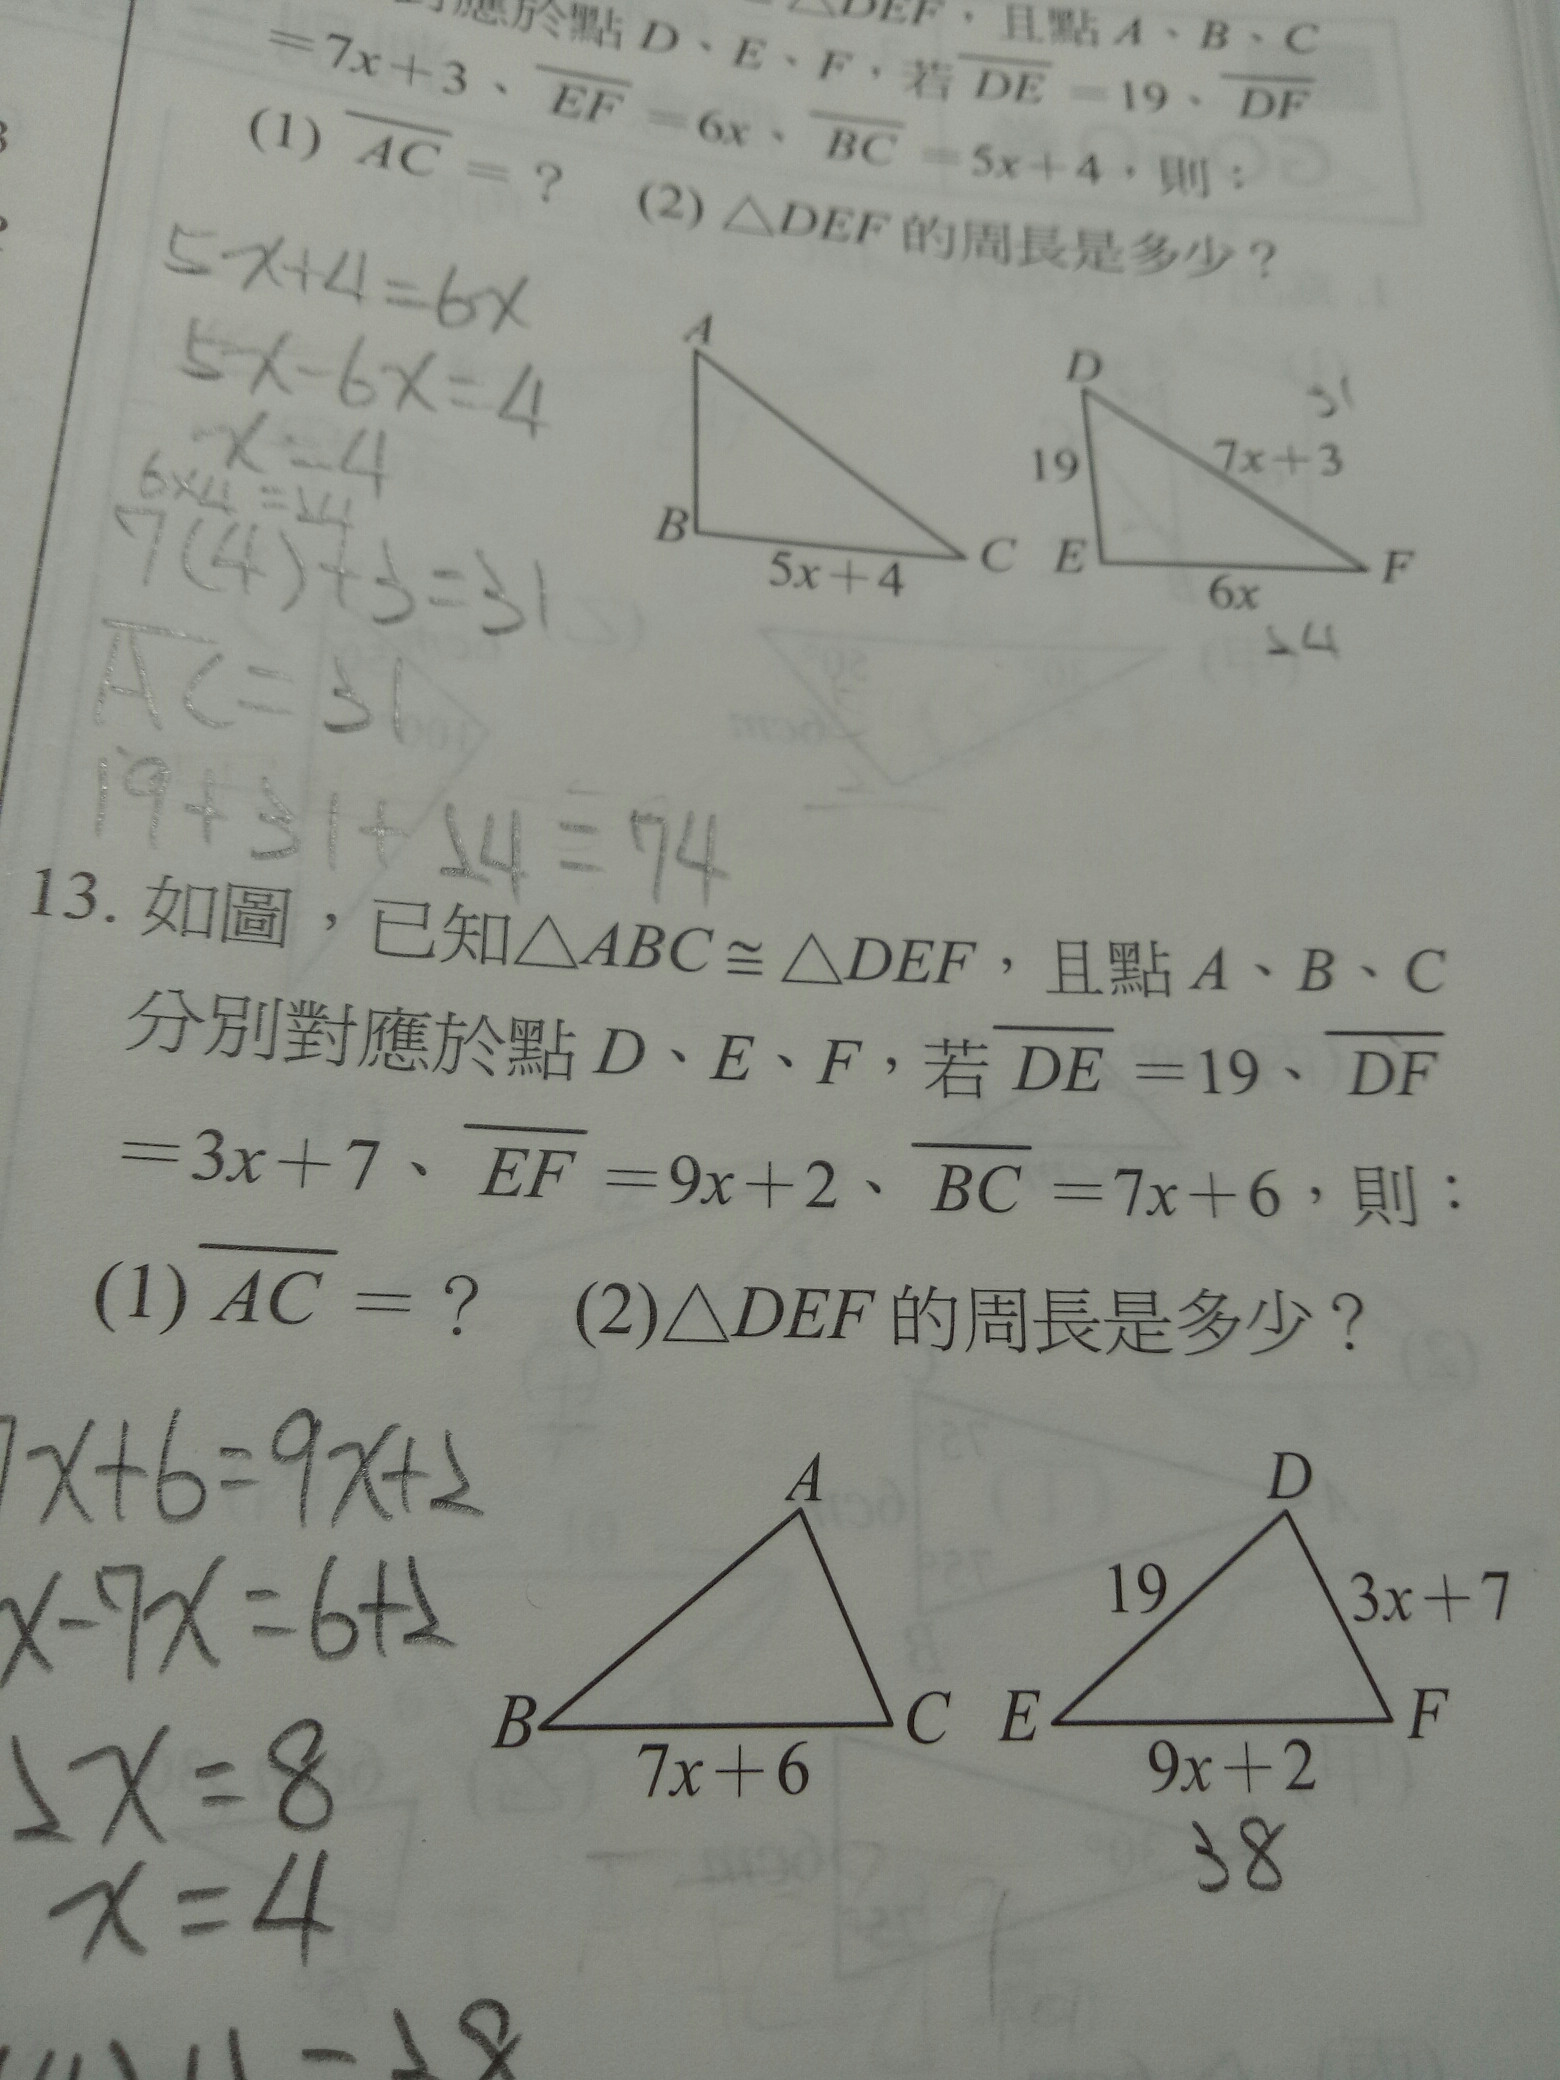 對應於點 D、E、F，若 DE =19、DF
△DEF，且點 A、B、C
=7x+3、EF =6x、BC =5x+4，則：
(1) AC =？ (2) △DEF 的周長是多少？
5x+4=6x
5x-6x=4
x=4
6x4=24
7(4)+3=31
AC=31
19+31+24=74
A
B
C
5x+4
D
31
19
7x+3
E
F
6x
24
13. 如圖，已知△ABC≅△DEF，且點 A、B、C
分別對應於點 D、E、F，若 DE =19、DF
=3x+7、EF =9x+2、BC =7x+6，則：
(1) AC =？ (2)△DEF 的周長是多少？
7x+6=9x+2
x-7x=6+2
2x=8
x=4
A
B
C
7x+6
D
19
3x+7
E
F
9x+2
38